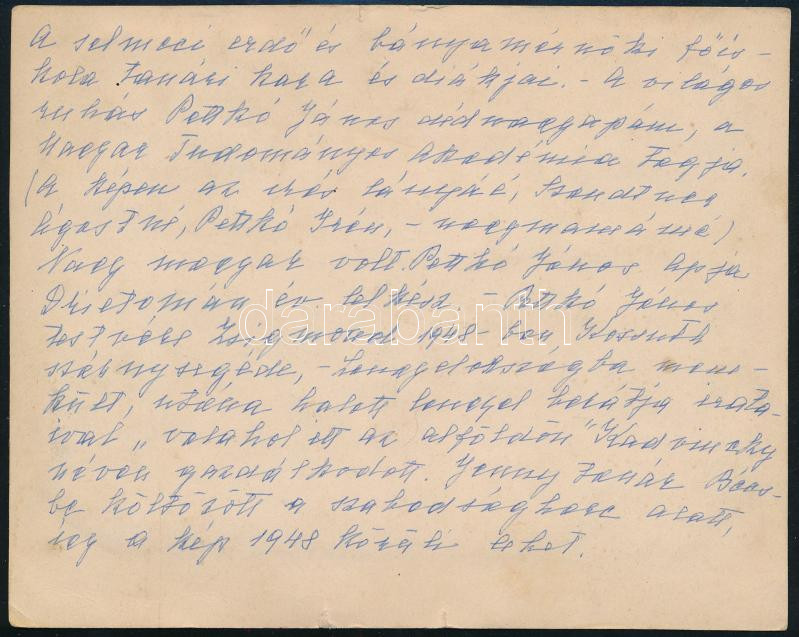 A selmeci erdő és bányamérnöki főis-
kola tanári kara és diákjai. - A világos
ruhás Pettkó János dédnagyapám, a
Magyar Tudományos Akadémia Tagja.
(A képen az írás lányáé, Szandtner
Ágostné, Pettkó Irén, - nagymamámé)
Nagy magyar volt. Pettkó János apja
Drietomán év lelkész. - Pettkó János
testvére Zsigmond 1948-ban Kossuth
szárnysegéde, - Lengyelországba mene-
kült, utána halott lengyel barátja irata-
ival "valahol itt az alföldön" Kadvinszky
néven gazdálkodott. Jenny tanár Bécs-
be költözött a szabadságharc alatt,
így a kép 1948 körüli lehet.
darabanth